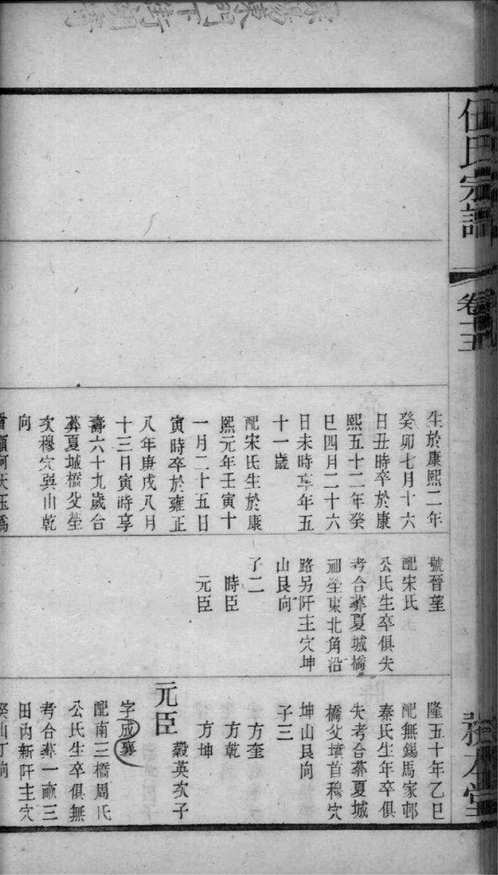 伍氏宗譜
卷十五
生於康熙二年
癸卯七月十六
日丑時卒於康
熙五十二年癸
巳四月二十六
日未時享年五
十一歲
配宋氏生於康
熙元年壬寅十
一月二十五日
寅時卒於雍正
八年庚戌八月
十三日寅時享
壽六十九歲合
葬夏城橋父塋
次穆穴與山乾
向
號晉堇
配宋氏
公氏生卒俱失
考合葬夏城橋
祠塋東北角沿
路另阡主穴坤
山艮向
子二
時臣
元臣
隆五十年乙巳
配無錫馬家邨
秦氏生年卒俱
失考合葬夏城
橋父墳首穆穴
坤山艮向
子三
方奎
方乾
方坤
元臣
毅英次子
字成襄
配南三橋周氏
公氏生卒俱無
考合葬一畝三
田內新阡主穴
癸山丁向